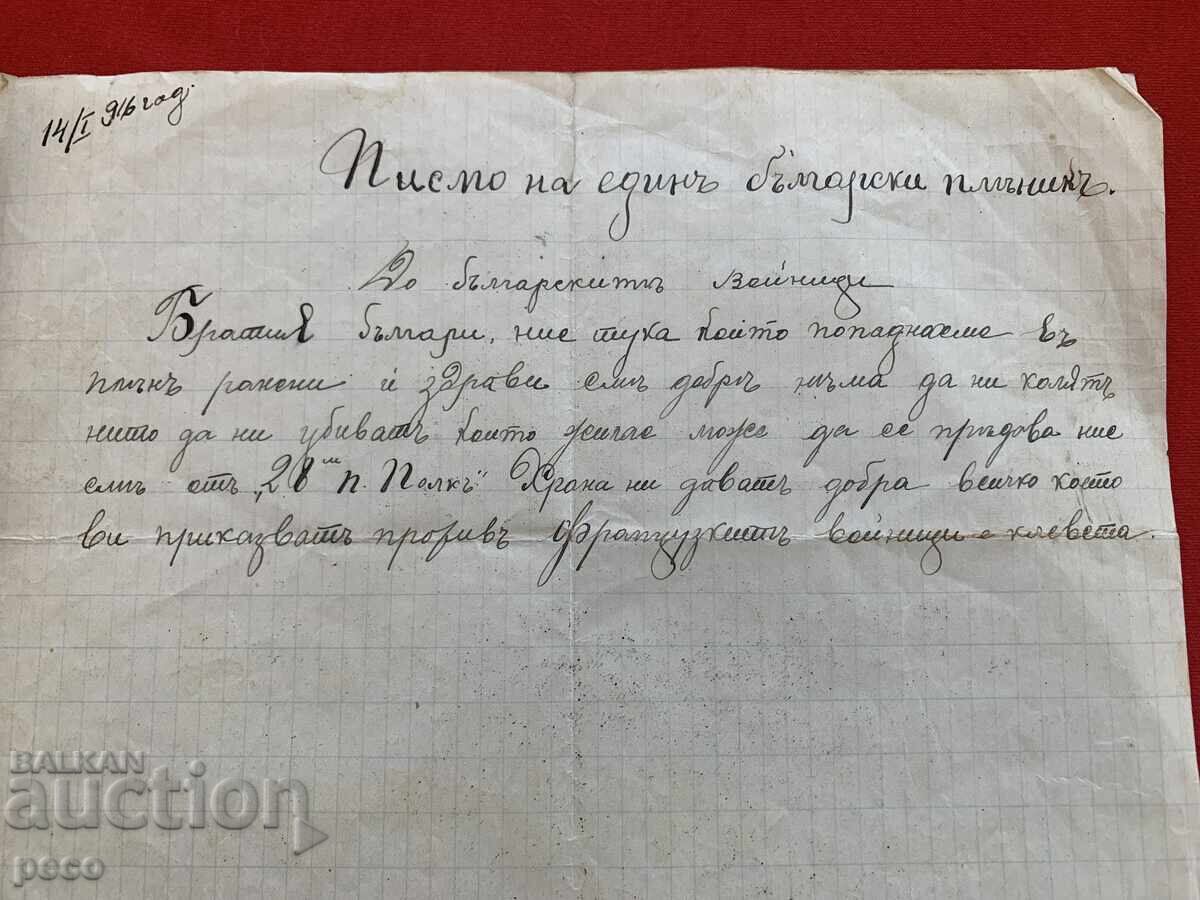 14/I 916 год.
Писмо на единъ български плѣникъ.
До българскитѣ войници
Братия българи, ние тука който попаднахме въ
плѣнъ ранени и здрави смѣ добрѣ нѣма да ни колятъ
нито да ни убиватъ който желае може да се прѣдова ние
смѣ отъ „28ми п. Полкъ" Храна ни даватъ добра всичко което
ви приказватъ противъ французкитѣ войници е клевета.
BALKAN
auction
peco